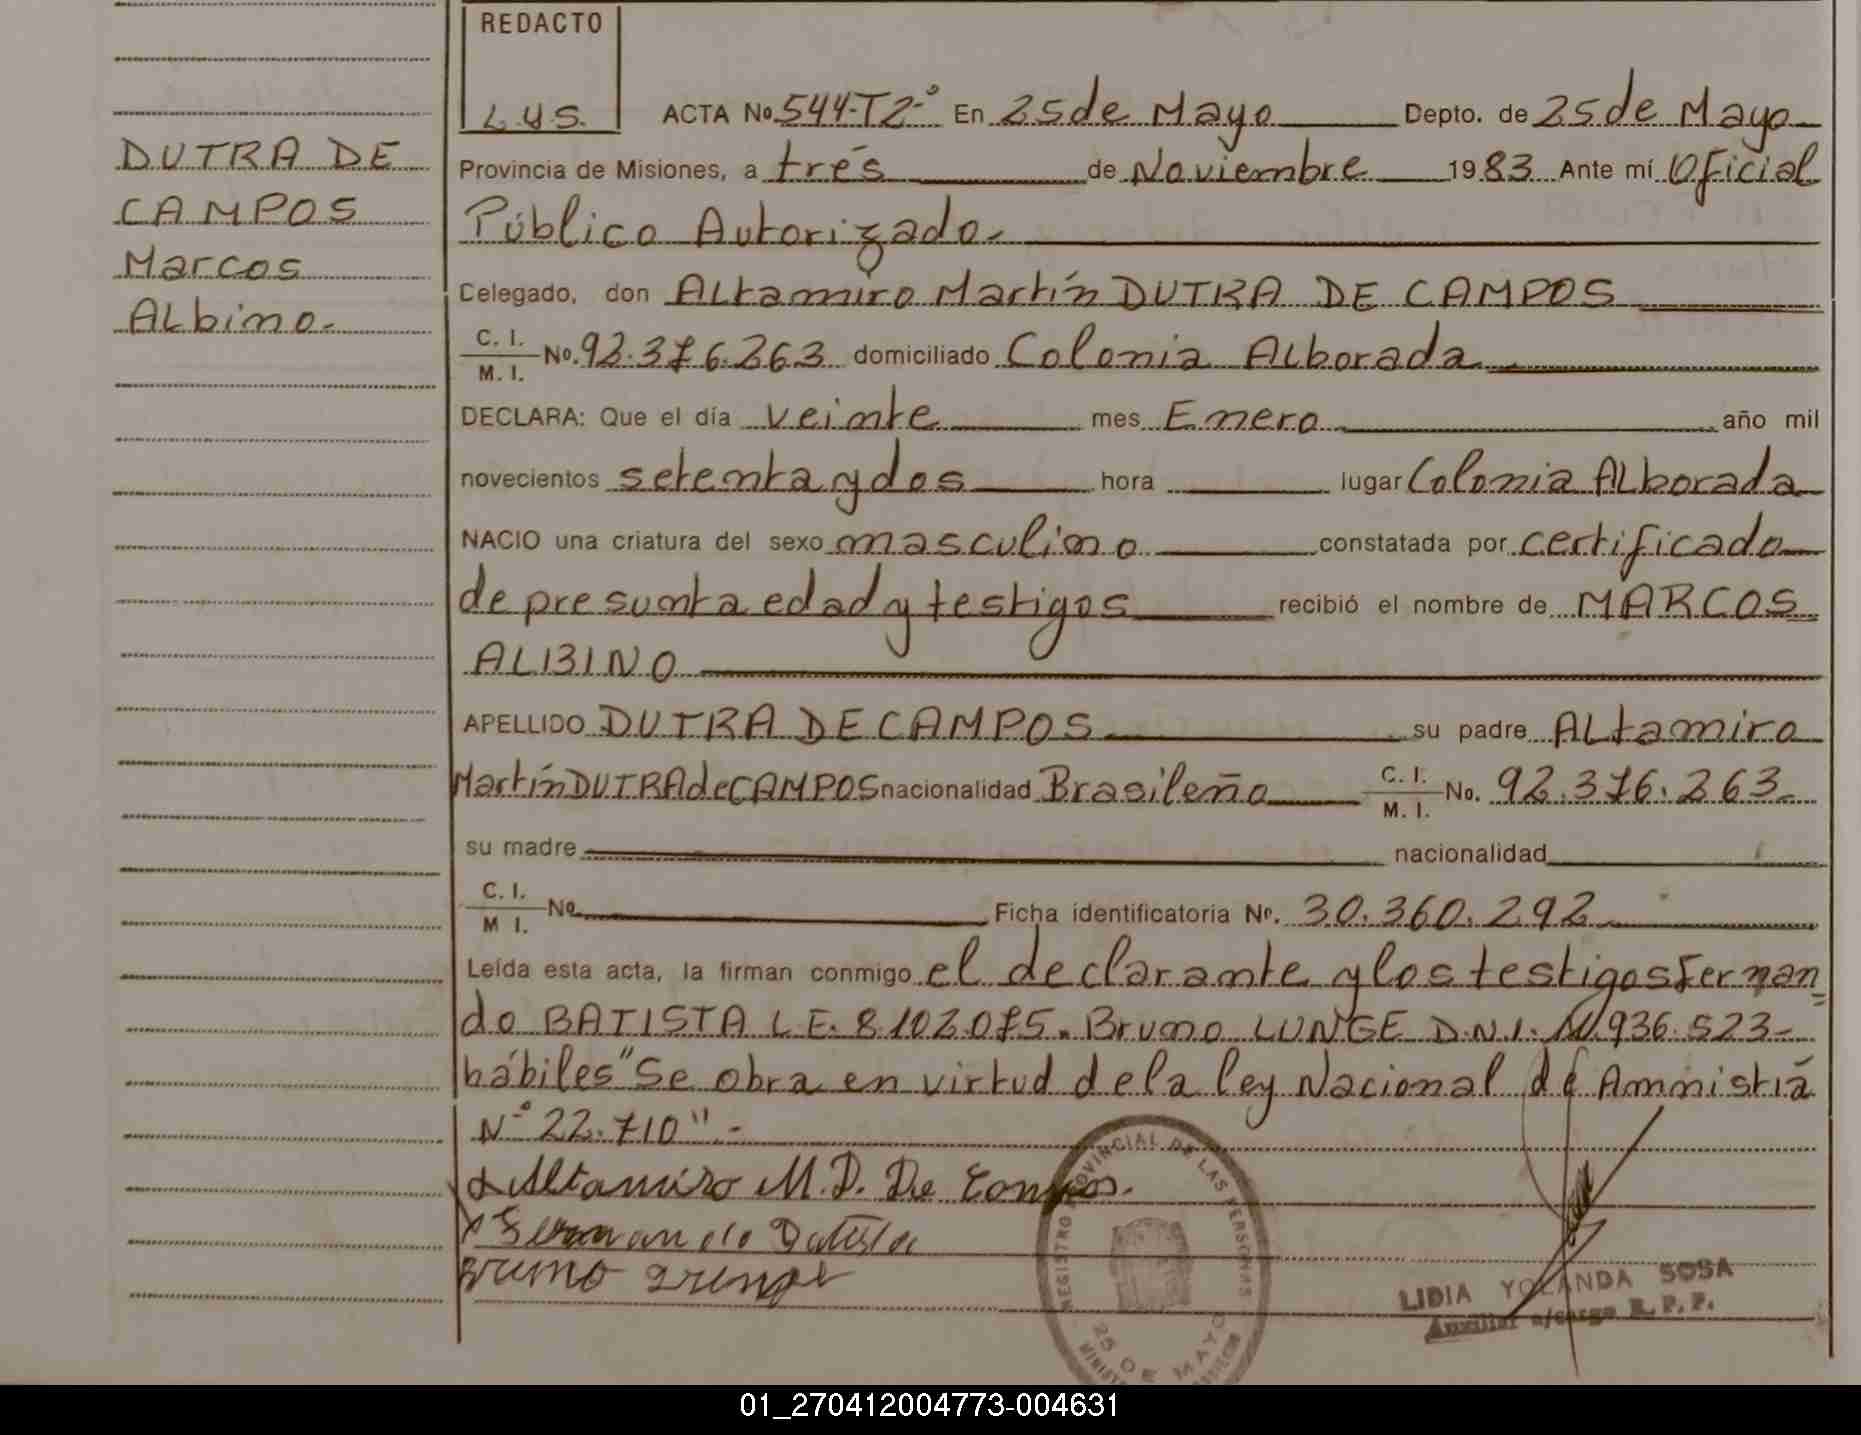 REDACTO
L.Y.S.
ACTA No. 544-T2-° En 25 de Mayo Depto. de 25 de Mayo
DUTRA DE
CAMPOS
Marcos
Albino.-
Provincia de Misiones, a trés de Noviembre 1983 Ante mí Oficial
Público Autorizado.-
Celegado, don Altamiro Martín DUTRA DE CAMPOS
C. I. / M. I. No. 92.376.263 domiciliado Colonia Alborada
DECLARA: Que el día veinte mes Enero año mil
novecientos setenta y dos hora lugar Colonia Alborada
NACIO una criatura del sexo masculino constatada por certificado
de presunta edad y testigos recibió el nombre de MARCOS
ALBINO
APELLIDO DUTRA DE CAMPOS su padre Altamiro
Martín DUTRA de CAMPOS nacionalidad Brasileño C. I. / M. I. No. 92.376.263-
su madre nacionalidad
C. I. / M I. No Ficha identificatoria No. 30.360.292
Leída esta acta, la firman conmigo el declarante y los testigos Fernan=
do BATISTA L.E. 8.102.075. Bruno LUNGE D.N.I. 936.523-
hábiles "Se obra en virtud de la ley Nacional de Amnistiá
N° 22.710" -
Altamiro M. D. De Campos.
Fernando Batista
Bruno
REGISTRO PROVINCIAL DE LAS PERSONAS
25 DE MAYO
LIDIA YOLANDA SOSA
Auxiliar a/cargo R. P. P.
01_270412004773-004631